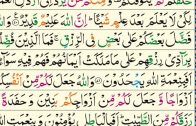 لَا يَعْلَمَ بَعْدَ عِلْمٍ شَيْئًا إِنَّ اللّٰهَ عَلِيمٌ قَدِيرٌ
فَضَّلَ بَعْضَكُمْ عَلٰى بَعْضٍ فِي الرِّزْقِ فَمَا الَّذِينَ فُضِّلُوا
بِرَادِّي رِزْقِهِمْ عَلٰى مَا مَلَكَتْ أَيْمَانُهُمْ فَهُمْ فِيهِ سَوَاءٌ
أَفَبِنِعْمَةِ اللّٰهِ يَجْحَدُونَ وَاللّٰهُ جَعَلَ لَكُمْ مِّنْ
أَزْوَاجًا وَّجَعَلَ لَكُمْ مِّنْ أَزْوَاجِكُمْ بَنِينَ وَحَفَدَةً
الطَّيِّبَاتِ أَفَبِالْبَاطِلِ يُؤْمِنُونَ وَبِنِعْمَتِ اللّٰهِ